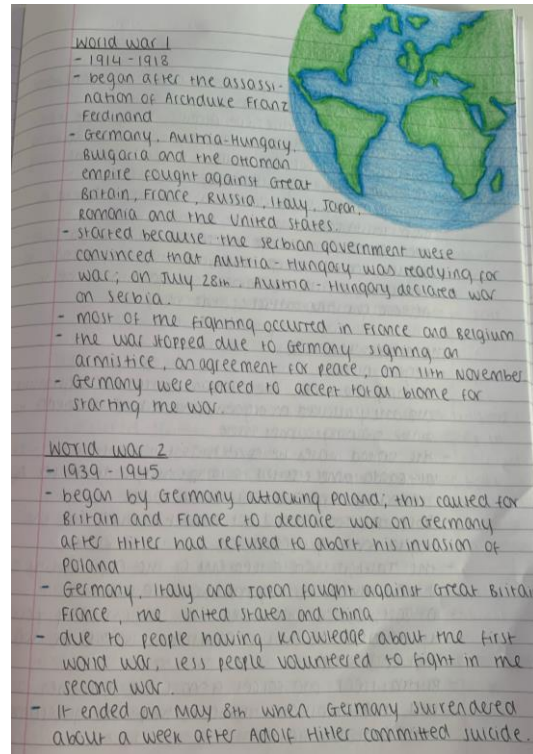 World war 1
- 1914 - 1918
- began after the assassi-
nation of Archduke Franz
Ferdinand
- Germany, Austria-Hungary,
Bulgaria and the Ottoman
empire fought against Great
Britain, France, Russia, Italy, Japan,
Romania and the United States.
- started because the Serbian government were
convinced that Austria - Hungary was readying for
war; on July 28th, Austria - Hungary declared war
on Serbia.
- most of the fighting occurred in France and Belgium
- the war stopped due to Germany signing an
armistice, an agreement for peace, on 11th November
- Germany were forced to accept total blame for
starting the war.
World war 2
- 1939 - 1945
- began by Germany attacking Poland; this caused for
Britain and France to declare war on Germany
after Hitler had refused to abort his invasion of
Poland
- Germany, Italy and Japan fought against Great Britai
France, the United States and China
- due to people having knowledge about the first
world war, less people volunteered to fight in the
second war.
- It ended on May 8th when Germany surrendered
about a week after Adolf Hitler committed suicide.